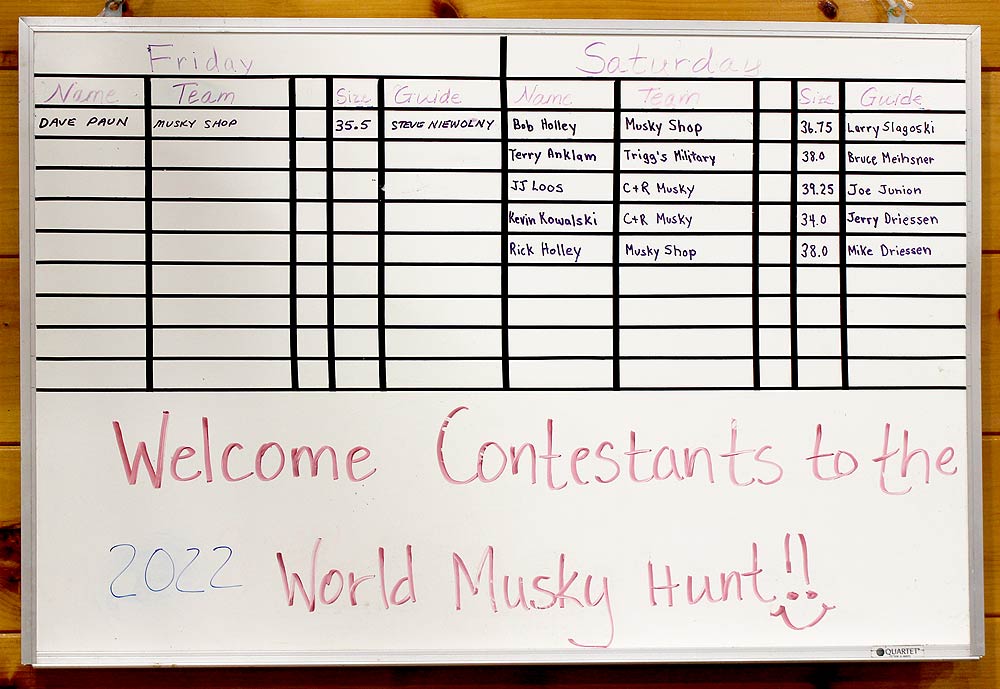 Friday Saturday
Name Team Size Guide Name Team Size Guide
DAVE PAUN MUSKY SHOP 35.5 STEVE NIEWOLNY Bob Holley Musky Shop 36.75 Larry Slagoski
Terry Anklam Trigg's Military 38.0 Bruce Meihsner
JJ Loos C+R Musky 39.25 Joe Junion
Kevin Kowalski C+R Musky 34.0 Jerry Driessen
Rick Holley Musky Shop 38.0 Mike Driessen
Welcome Contestants to the
2022 World Musky Hunt!!
QUARTET